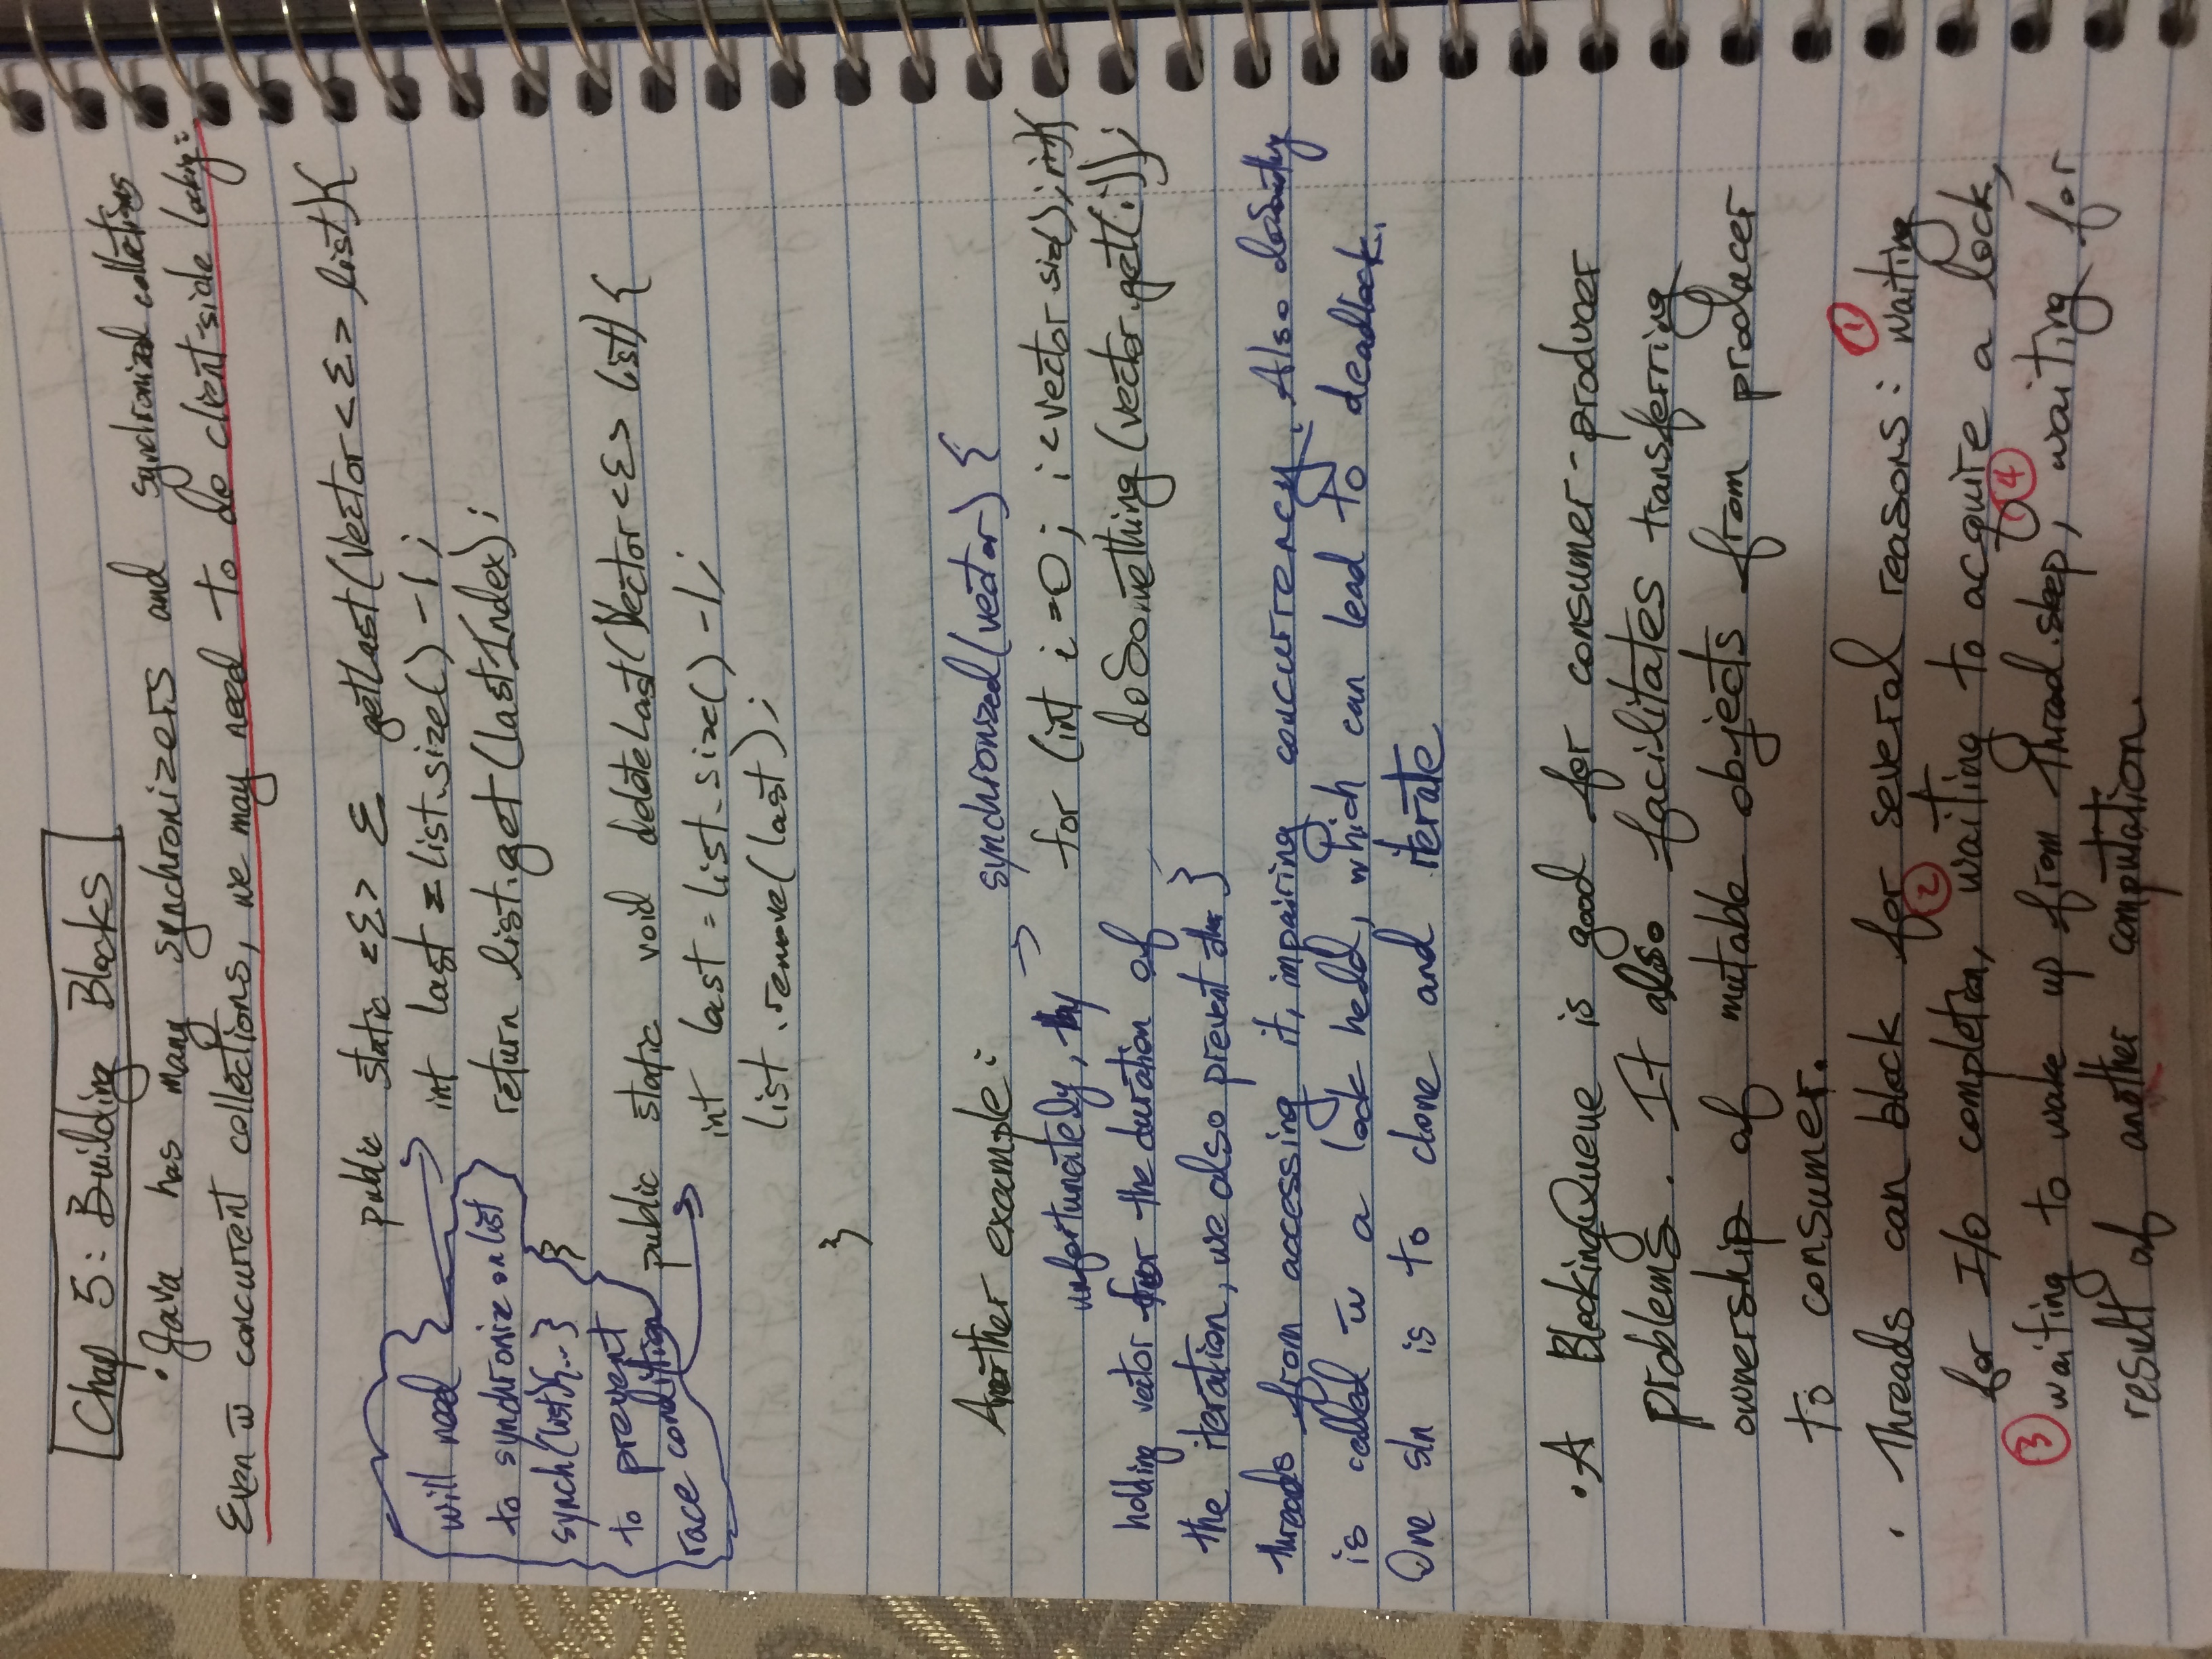 Chap 5: Building Blocks
• Java has many synchronizers and synchronized collections
Even w̄ concurrent collections, we may need to do client-side locking:
public static <E> E getLast(Vector<E> list){
int last = list.size() -1;
return list.get(lastIndex);
}
will need
to synchronize on list
synch(list){...}
to prevent
race condition
public static void deleteLast(Vector<E> list){
int last = list.size() -1;
list.remove(last);
}
Another example:
synchronized(vector) {
for (int i=0; i<vector.size(); i++){
doSomething(vector.get(i));
}
unfortunately, by
holding vector for the duration of
the iteration, we also prevent other
threads from accessing it, impairing concurrency. Also doSomething
is called w̄ a lock held, which can lead to deadlock.
One sln is to clone and iterate
• A BlockingQueue is good for consumer-producer
problems. It also facilitates transferring
ownership of mutable objects from producer
to consumer.
• Threads can block for several reasons: ① waiting
for I/O completion, ② waiting to acquire a lock,
③ waiting to wake up from Thread.sleep, ④ waiting for
result of another computation.